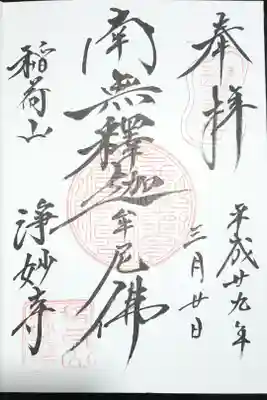 奉拝
平成廿九年
三月廿日
南無釋迦牟尼佛
稲荷山
浄妙寺